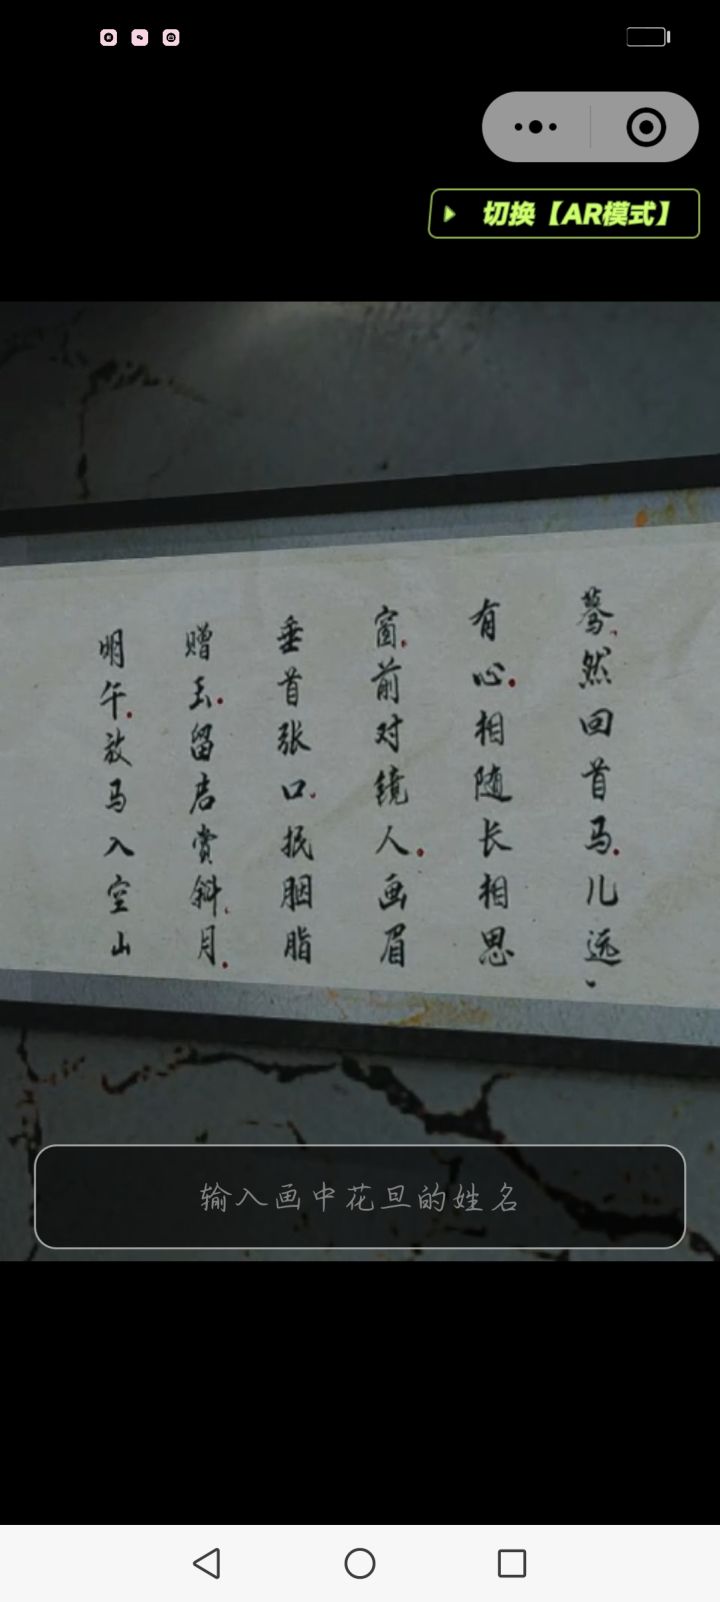 切换【AR模式】
蓦然回首马儿远
有心相随长相思
窗前对镜人画眉
垂首张口抿胭脂
赠玉留启赏斜月
明午放马入空山
输入画中花旦的姓名